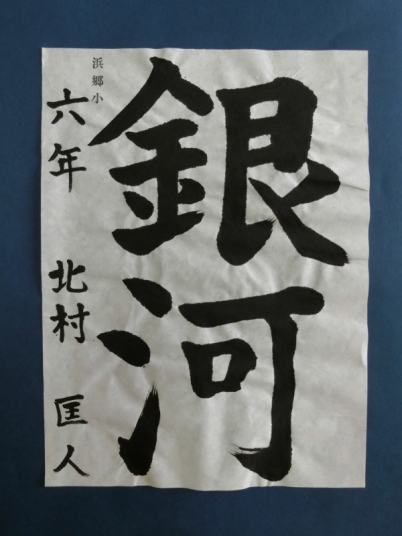 銀河
浜郷小
六年 北村 匡人